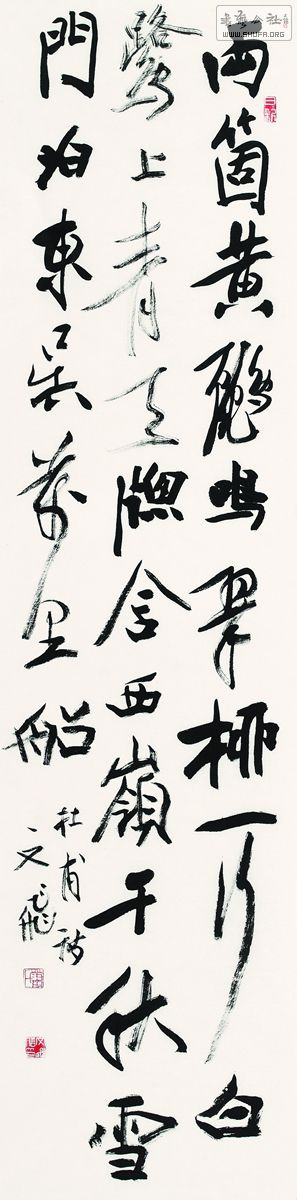 書法公社
WWW.SHUFA.ORG
兩箇黃鸝鳴翠柳一行白
鷺上青天牕含西嶺千秋雪
門泊東吳萬里船
杜甫詩